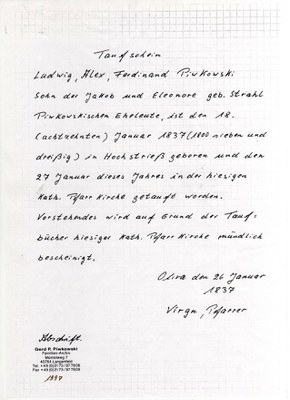 Taufschein
Ludwig, Alex, Ferdinand Piwkowski
Sohn der Jakob und Eleonore geb. Strahl
Piwkowskischen Eheleute, ist den 18.
(achtzehnten) Januar 1837 (1800 sieben und
dreißig) in Hochstrieß geboren und den
27 Januar dieses Jahres in der hiesigen
Kath. Pfarrkirche getauft worden.
Vorstehendes wird auf Grund der Tauf=
bücher hiesiger Kath. Pfarrkirche mündlich
bescheinigt.
Oliva den 26 Januar
1837
Virgn, Pfarrer
Abschrift.
Gerd P. Piwkowski
Familien-Archiv
40764 Langenfeld
1997